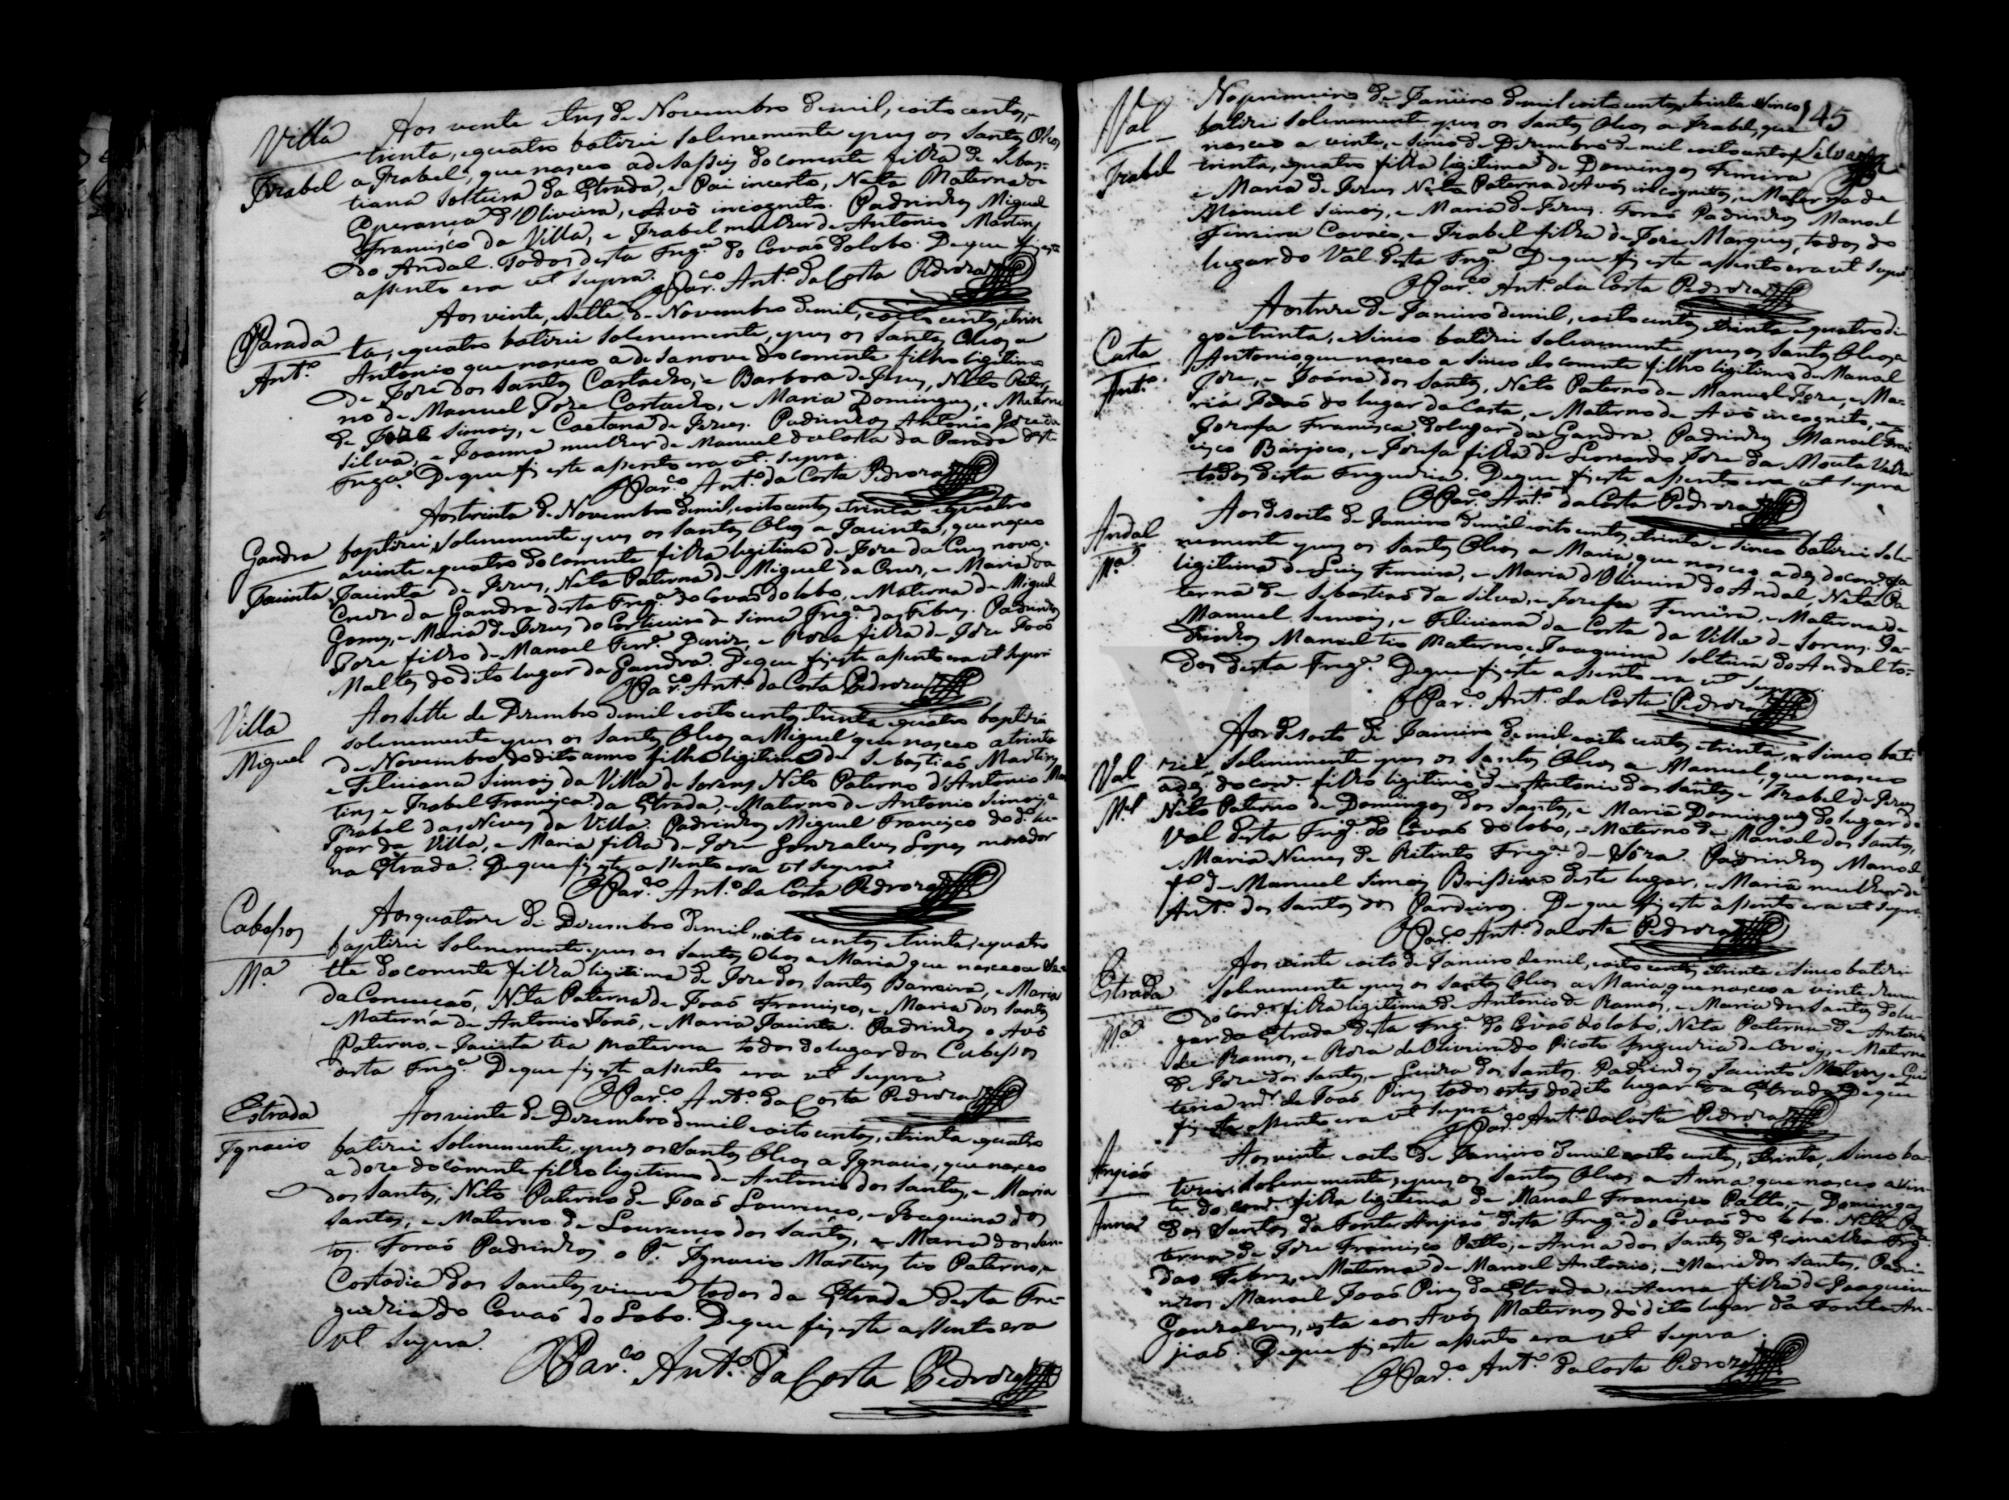 Villa
Izabel
Aos vente e trez de Novembro de mil, oito centos,
trinta, e quatro batizei solenemente e puz os Santos Oleos
a Izabel, que nasceo a desasseis do corrente filha de Sebas-
tiana solteira da Estrada, e Pai incerto, Neta Materna de
Esperança d'Oliveira, e Avô incognito. Padrinhos Miguel
Francisco da Villa, e Izabel mulher de Antonio Martins
do Andal. Todos desta Freg.ª do Covaõ do lobo. De que fiz este
assento era ut supra.
O Par.º Ant.º da Costa Pedroza
Parada
Ant.º
Aos vinte, e sette de Novembro de mil, oito centos, e trin
ta, e quatro batizei solenemente, e puz os Santos Oleos a
Antonio que nasceo a desanove do corrente filho legitimo
de Joze dos Santos Castacho, e Barbora de Jezus, Neto Pater
no de Manuel Joze Castacho, e Maria Domingues, e Materno
de Joze Simois, e Caetana de Jezus. Padrinhos Antonio Joze da
Silva, e Joanna mulher de Manuel da Costa da Parada desta
Freg.ª De que fiz este assento era ut supra.
O Par.º Ant.º da Costa Pedroza
Gandra
Jacinta
Aos trinta de Novembro de mil, oito centos, e trinta e quatro
baptizei solenemente e puz os Santos Oleos a Jacinta, que nasceo
a vinte e quatro do corrente filha legitima de Joze da Cruz novo, e
Jacinta de Jezus, Neta Paterna de Miguel da Cruz, e Maria da
Cruz da Gandra desta Freg.ª do Covaõ do lobo, e Materna de Miguel
Gomes, e Maria de Jezus do Corticeiro de Sima Freg.ª das Febres. Padrinhos
Joze filho de Manoel Ferr.ª Deniz, e Roza filha de Joze Joaõ
Maltez do dito lugar da Gandra. De que fiz este assento era ut supra
O Par.º Ant.º da Costa Pedroza
Villa
Miguel
Aos sette de Dezembro de mil oito centos trinta e quatro baptizei
solenemente e puz os Santos Oleos a Miguel que nasceo a trinta
de Novembro do dito anno filho legitimo de Sebastiaõ Martins
e Feliciana Simois da Villa de Sorens, Neto Paterno d'Antonio Mar
tins e Izabel Francisca da Estrada, e Materno de Antonio Simois, e
Izabel das Neves da Villa. Padrinhos Miguel Francisco do d.º lu-
gar da Villa, e Maria filha de Joze Gonzalves Lopes morador
na Estrada. De que fiz este assento era ut supra
O Par.º Ant.º da Costa Pedroza
Cabessos
M.ª
Aos quatorze de Dezembro de mil, oito centos, e trinta, e quatro
baptizei solenemente e puz os Santos Oleos a Maria que nasceo a Se-
tte do corrente filha legitima de Joze dos Santos Barreira, e Maria
da Conceicaõ, Neta Paterna de Joaõ Francisco, e Maria dos Santos
e Materna de Antonio Joaõ, e Maria Jacinta. Padrinhos o Avô
Paterno, e Jacinta tia materna todos do lugar dos Cabessos
desta Freg.ª De que fiz este assento era ut supra
O Par.º Ant.º da Costa Pedroza
Estrada
Ignacio
Aos vinte de Dezembro de mil oito centos, e trinta e quatro
batizei solenemente, e puz os Santos Oleos a Ignacio, que nasceo
a doze do corrente filho legitimo de Antonio dos Santos, e Maria
dos Santos, Neto Paterno de Joaõ Lourenço, e Joaquina dos
Santos, e Materno de Lourenco dos Santos, e Maria dos San-
tos. Foraõ Padrinhos o P.e Ignacio Martins tio Paterno, e
Custodia dos Santos viuva todos da Estrada desta Fre-
guezia do Covaõ do Lobo. De que fiz este assento era
ut supra.
O Par.º Ant.º da Costa Pedroza
145
Silva
Val
Izabel
No primeiro de Janeiro de mil oito centos, e trinta e sinco
batizei solenemente e puz os Santos Oleos a Izabel, que
nasceo a vinte, e sinco de Dezembro de mil oito centos
trinta, e quatro filha legitima de Domingos Ferreira
e Maria de Jezus Neta Paterna de Avós incognitos, e Materna de
Manuel Simois, e Maria de Jezus. Foraõ Padrinhos Manoel
Ferreira Cavaco, e Izabel filha de Joze Marques, todos do
lugar do Val desta Freg.ª De que fiz este assento era ut supra
O Par.º Ant.º da Costa Pedroza
Costa
Ant.º
Aos treze de Janeiro de mil, oito centos, e trinta e quatro di-
go e trinta, e sinco batizei solenemente e puz os Santos Oleos a
Antonio, que nasceo a sinco do corrente filho legitimo de Manoel
Joze, e Joána dos Santos, Neto Paterno de Manuel Joze, e Ma-
ria Joaõ do lugar da Costa, e Materno de Avô incognito, e
Jozefa Francisca do lugar da Gandra. Padrinhos Manoel Fran
cisco Barjoco, e Jozefa filha de Leonardo Joze da Mouta Velha
todos desta Freguezia. De que fiz este assento era ut supra
O Par.º Ant.º da Costa Pedroza
Andal
M.ª
Aos desoito de Janeiro de mil oito centos, e trinta e sinco batizei sole-
nemente e puz os Santos Oleos a Maria, que nasceo a dez do corr.e fa
legitima de Luiz Ferreira, e Maria d'Oliveira do Andal, Neta Pa
terna de Sebastiaõ da Silva, e Jozefa Ferreira, e Materna de
Manuel Simois, e Feliciana da Costa da Villa de Sorens. Pa-
drinhos Manoel tio Materno, e Joaquina solteira do Andal to-
dos desta Freg.ª De que fiz este assento era ut supra
O Par.º Ant.º da Costa Pedroza
Val
M.el
Aos desoito de Janeiro de mil, oito centos, e trinta, e sinco bati
zei solenemente e puz os Santos Oleos a Manuel, que nasceo
a dez do corr.e filho legitimo de Antonio dos Santos, e Izabel de Jezus
Neto Paterno de Domingos dos Santos, e Maria Domingues do lugar do
Val desta Freg.ª do Covaõ do lobo, e Materno de Manoel dos Santos,
e Maria Nunes de Ritinto Freg.ª de Sôza. Padrinhos Manoel
f.º de Manuel Simois Brissimo deste lugar, e Maria mulher de
Ant.º dos Santos dos Pardeiros. De que fiz este assento era ut supra
O Par.º Ant.º da Costa Pedroza
Estrada
M.ª
Aos vinte e oito de Janeiro de mil, oito centos, e trinta e sinco batizei
solenemente e puz os Santos Oleos a Maria que nasceo a vinte
do corr.e filha legitima de Antonio de Ramos, e Maria dos Santos do lu-
gar da Estrada desta Freg.ª do Covaõ do lobo, Neta Paterna de Antonio
de Ramos, e Roza de Oliveira do Picoto Freguezia de Covois, e Materna
de Joze dos Santos, e Luiza dos Santos. Padrinhos Jacinto Martins, e Qui
teria m.er de Joaõ Pires todos estes do dito lugar da Estrada. De que
fiz este assento era ut supra.
O Par.º Ant.º da Costa Pedroza
Anjiaõ
Anna
Aos vinte e oito de Janeiro de mil oito centos, e trinta, e sinco ba-
tizei solenemente, e puz os Santos Oleos a Anna que nasceo a vin-
te do corr.e filha legitima de Manoel Francisco Patto, e Domingas
dos Santos da Fonte Anjiaõ desta Freg.ª do Covaõ do Lobo. Neta Pa-
terna de Joze Francisco Patto, e Anna dos Santos da Freg.ª
das Febres, e Materna de Manoel Antonio, e Maria dos Santos. Padri
nhos Manoel Joaõ Pires da Estrada, e Anna filha de Joaquim
Gonzalves, esta e os Avós Maternos do dito lugar da Fonte An-
jiaõ. De que fiz este assento era ut supra.
O Par.º Ant.º da Costa Pedroza